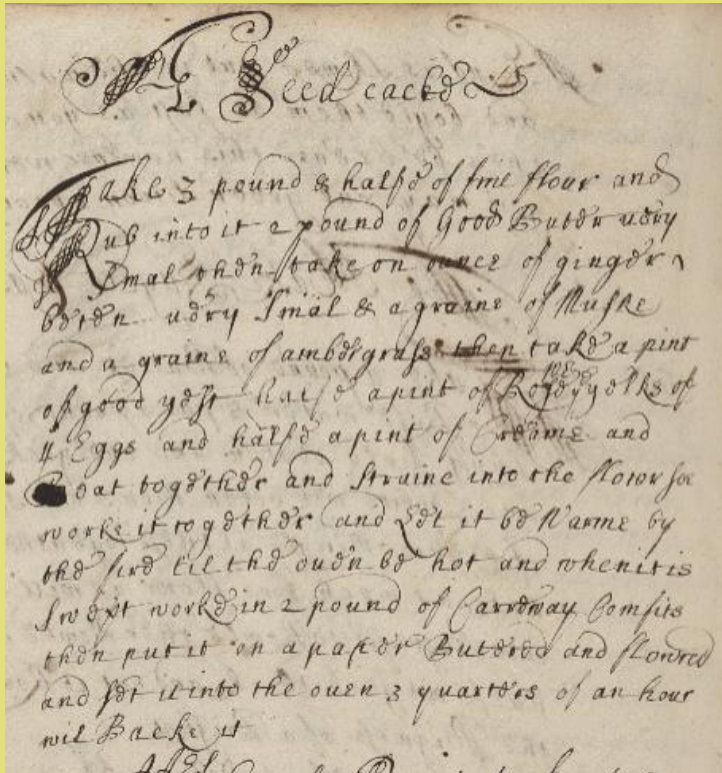 A Seed cacke 15
Take 3 pound & halfe of fine flour and
Rub into it 2 pound of Good Buter uery
Smal then take on ounce of ginger
beten uery Smal & a graine of Muske
and a graine of ambergrass then take a pint
of good yest halfe a pint of yelks of
4 Eggs and halfe a pint of Creame and
boat together and straine into the flowr soe
worke it together and Let it be Warme by
the fire til the ouen be hot and when it is
swept worke in 2 pound of Carreway Comfits
then put it on a paper Butered and flowred
and set it into the ouen 3 quarters of an hour
wil Backe it